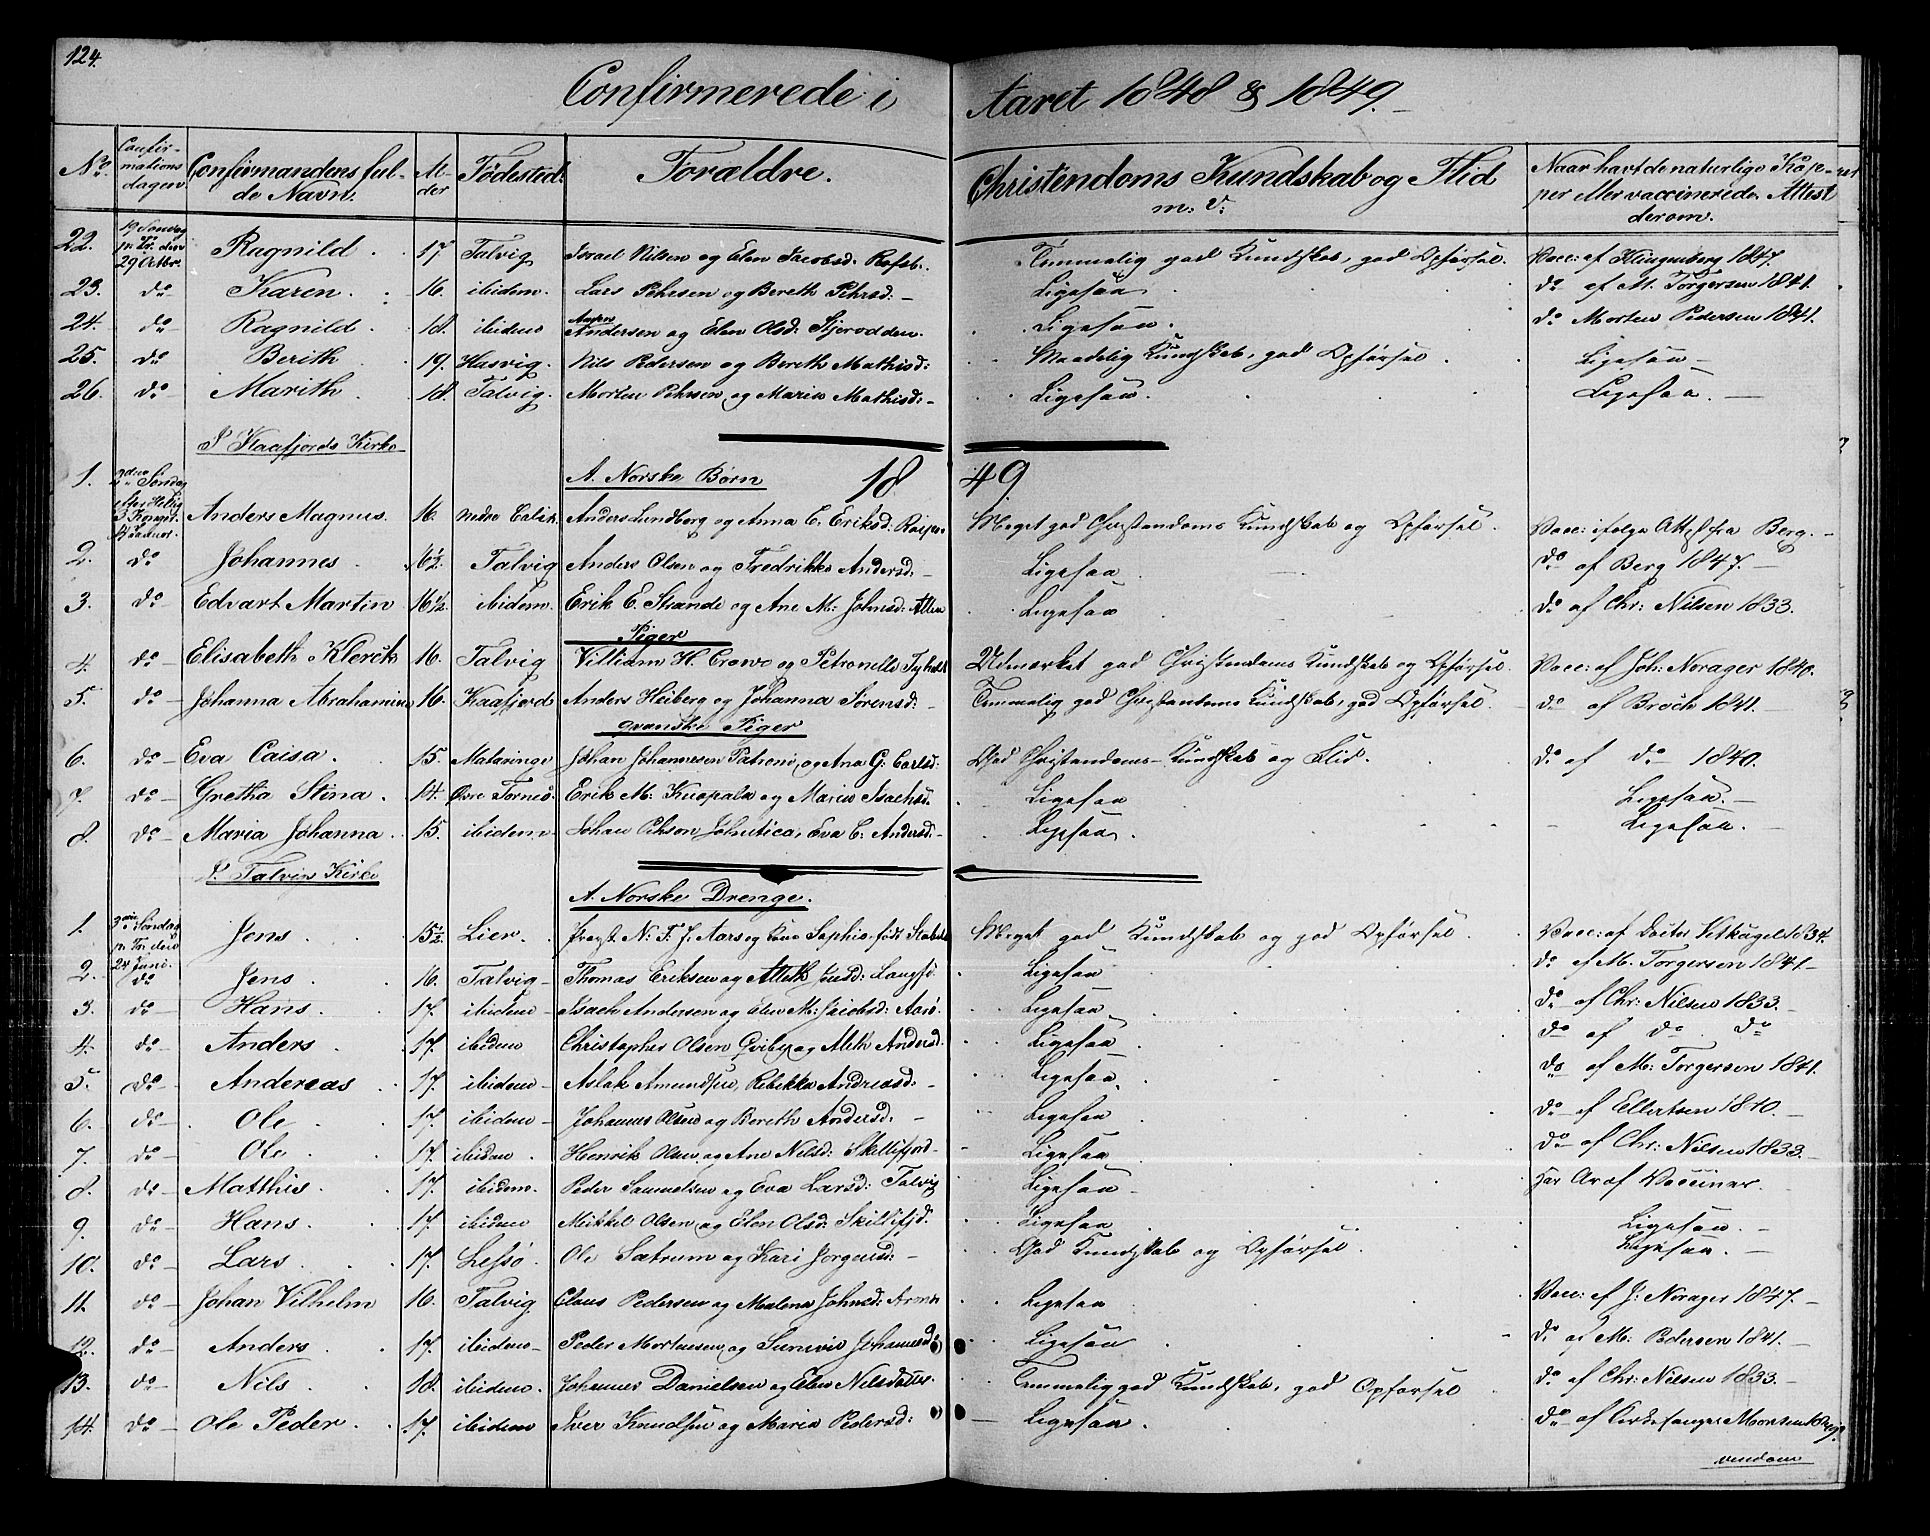 124.
Confirmerede i Aaret 1848 & 1849.
No. Confirmationsdagen Confirmandens fulde Navn. Alder Fødested. Forældre. Christendoms Kundskab og Flid m: v: Naar havt de naturlige Kopper eller vaccinerede, Attest derom.
22. 19 Søndag p. Tr. den 29 Octbr. Ragnild 17 Talvig Israel Nilsen og Elen Jacobsd: Temmelig god Kundskab, god Opførsel. Vacc: af Klingenberg 1847.
23. do Karen. 16. ibidem. Lars Pehrsen og Bereth Pehrsd: Ligesaa do af M. Torgersen 1841.
24. do Ragnild 18. ibidem Andersen og Elen Olsd: Ligesaa. do Morten Pedersen 1841.
25. do Berith 19. Hasvig. Nils Pedersen og Bereth Mathisd: Maadelig Kundskab, god Opførsel. Ligesaa
26. do Marith 18. Talvig. Morten Pehrsen og Maria Mathisd: Ligesaa. Ligesaa.
I Kaafjords Kirke
A. Norske Børn 1849
1. 2den Søndag efter Hellig 3 Konger Anders Magnus. 16. Nedre Calix. Anders Lundberg og Anna C. Eriksd: Meget god Christendoms Kundskab og Opførsel. Vacc: ifølge Attest fra Berg.
2. do Johannes 16½. Talvig Anders Olsen og Fredrikke Andersd: Ligesaa do af Berg 1847.
3. do Edvart Martin 16½. ibidem. Erik E. Strande og Ane M: Johnsd: Alten Ligesaa do af Chr: Nilsen 1833.
Piger
4. do Elisabeth Klerck 16. Talvig Villiam H. Crowe og Petronelle Udmærket god Christendoms Kundskab og Opførsel. Vacc: af Joh: Norager 1840.
5. do Johanna Abrahamine 16. Kaafjord Anders Heiberg og Johanna Sørensd: Temmelig god Christendoms Kundskab, god Opførsel. do af Broch 1841.
qvænske Piger
6. do Eva Caisa. 15. Mataringe Johan Johannesen og Ana G. Carlsd. God Christendoms Kundskab og Flid. do af do 1840.
7. do Gretha Stina. 14. Øvre Torneå. Erik M: og Maria Isachsd. Ligesaa Ligesaa.
8. do Maria Johanna. 15. ibidem Johan, Eva C: Andersd: Ligesaa. Ligesaa.
I. Talvigs Kirke
A. Norske Drenge.
1. 3die Søndag p. Tr. den 24 Juni. Jens 15½. Lier. Provst. N: F. J. Aars og født Meget god Kundskab og god Opførsel. Vacc: af 1834.
2. do Jens 16. Talvig Thomas Eriksen og Aleth Ligesaa do af M. Torgersen 1841.
3. do Hans 17. ibidem Isach Andersen og Elen M: Jacobsd: Aarø. Ligesaa do af Chr: Nilsen 1833.
4. do Anders. 17. ibidem Christopher Olsen og Aleth Andersd. Ligesaa do af do do
5. do Andereas 17. ibidem Aslak Amundsen, Rebekka Andreasd: Ligesaa do af M: Torgersen 1841.
6. do Ole 17. ibidem Johannes Olsen og Bereth Andersd: Ligesaa do af Ellertsen 1840.
7. do Ole 17. ibidem. Henrik Olsen og Ane Nilsd: Skillifjord Ligesaa do af Chr: Nilsen 1833.
8. do Matthis. 17. ibidem. Peder Samuelsen og Eva Larsd: Talvig Ligesaa har Ar af Vacciner.
9 do Hans. 17. ibidem Mikkel Olsen og Elen Olsd: Skillifjd. Ligesaa Ligesaa.
10. do Lars 17. Lessø. Ole Sætrum og Kari God Kundskab og Opførsel. Ligesaa.
11. do Johan Vilhelm 16. Talvig Claus Pedersen og Malena Johnsd: Ligesaa Vacc: af J: Norager 1847.
12. do Anders 17. ibidem Peder Mortensen og Sunniva Ligesaa do af M: Pedersen 1841.
13. do Nils 18. ibidem. Johannes Danielsen og Elen Nilsdatter. Temmelig god Kundskab, god Opførsel do af Chr: Nilsen 1833.
14. do Ole Peder 17. ibidem Iver Knudsen og Maria Pedersd: Ligesaa. do af Kirkesanger